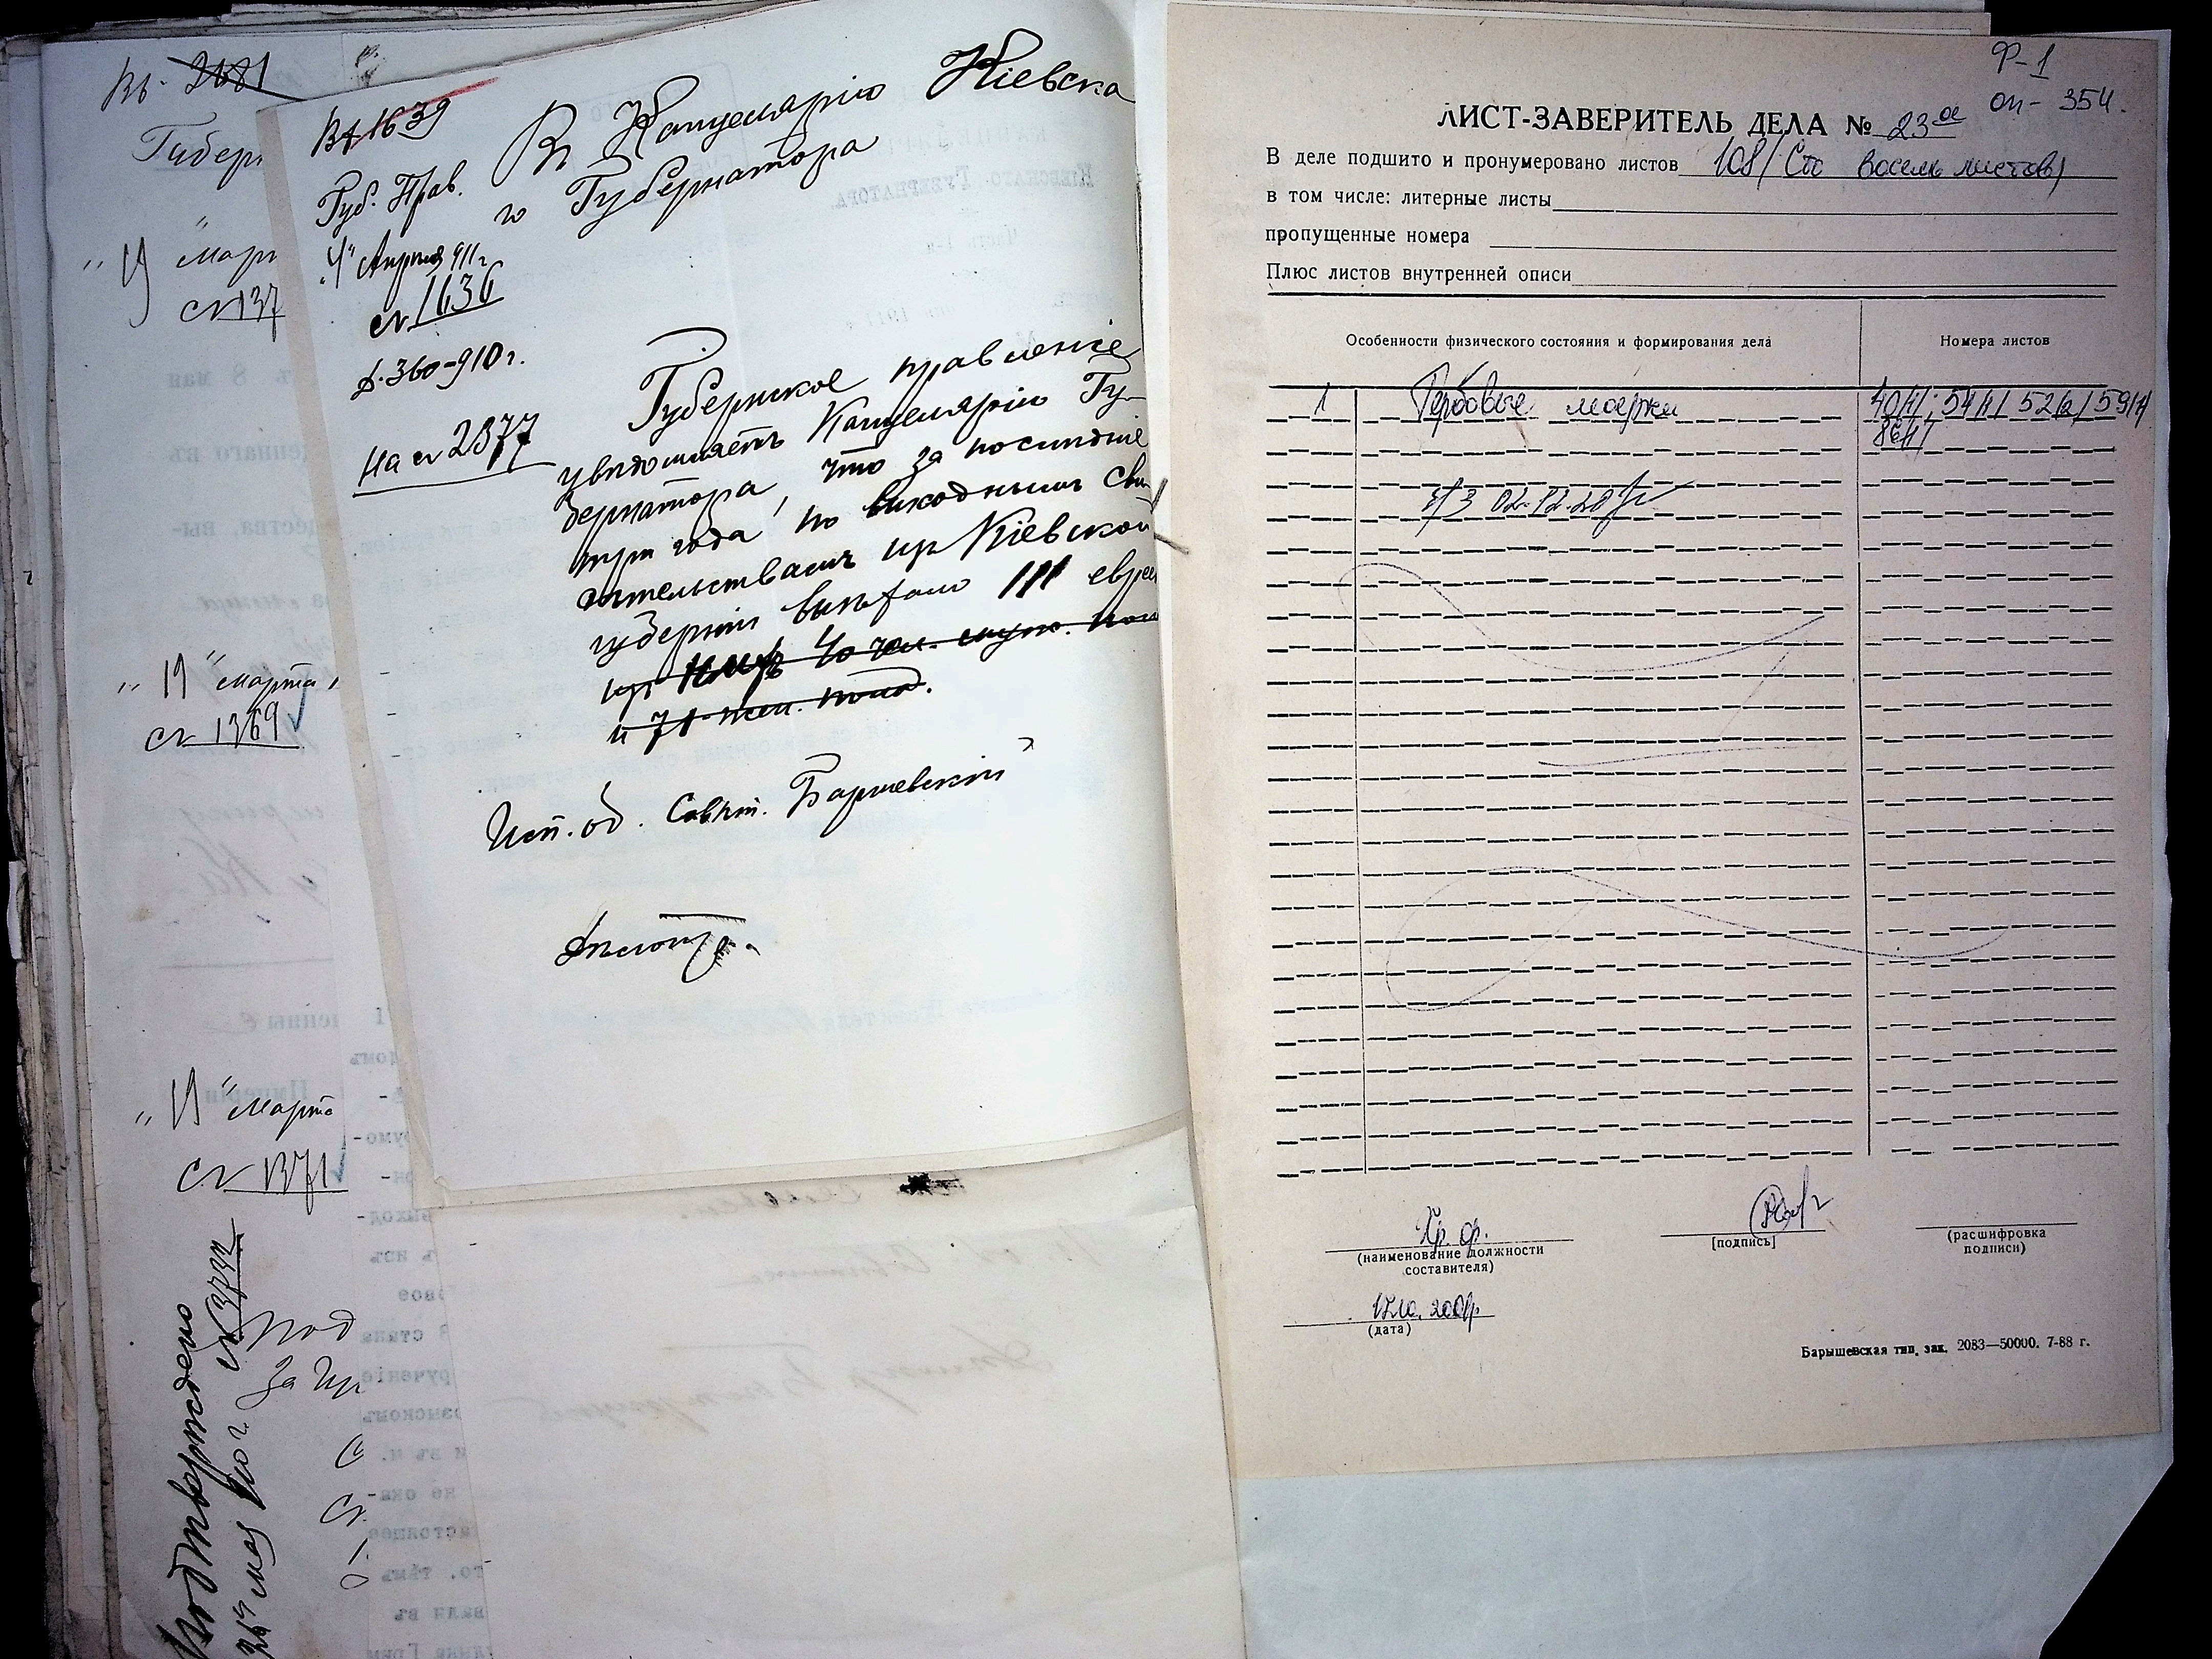 Вх. 2681
Губерн
"19" март
№ 137
"19" марта
№ 1369
"19" марта
№ 1371
Подтверждено
26 мая 910 г. № 3732
под
За пр
Вх 1639
Губ. Прав.
"4" Апреля 911 г.
№ 1636
Д. 360-910 г.
На № 2377
Въ Канцелярію Кіевска
го Губернатора
Губернское правленіе
увѣдомляетъ Канцелярію Гу-
бернатора, что за послѣдніе
три года по выходнымъ сви
дѣтельствамъ изъ Кіевской
губерніи выѣхало 111 евреев
изъ нихъ 40 чел. муж. пола
и 71 жен. пола.
Исп. об. Совѣт. Барщевскій
Ф-1
оп- 354.
ЛИСТ-ЗАВЕРИТЕЛЬ ДЕЛА № 23а
В деле подшито и пронумеровано листов 108 (Сто восемь листов)
в том числе: литерные листы
пропущенные номера
Плюс листов внутренней описи
Особенности физического состояния и формирования дела
Номера листов
1 Гербовые марки 40/1/; 51/1/ 52/2/ 59/1/
86/1/
(наименование должности
составителя)
[подпись]
(расшифровка
подписи)
(дата)
Барышевская тип. зак. 2083—50000. 7-88 г.